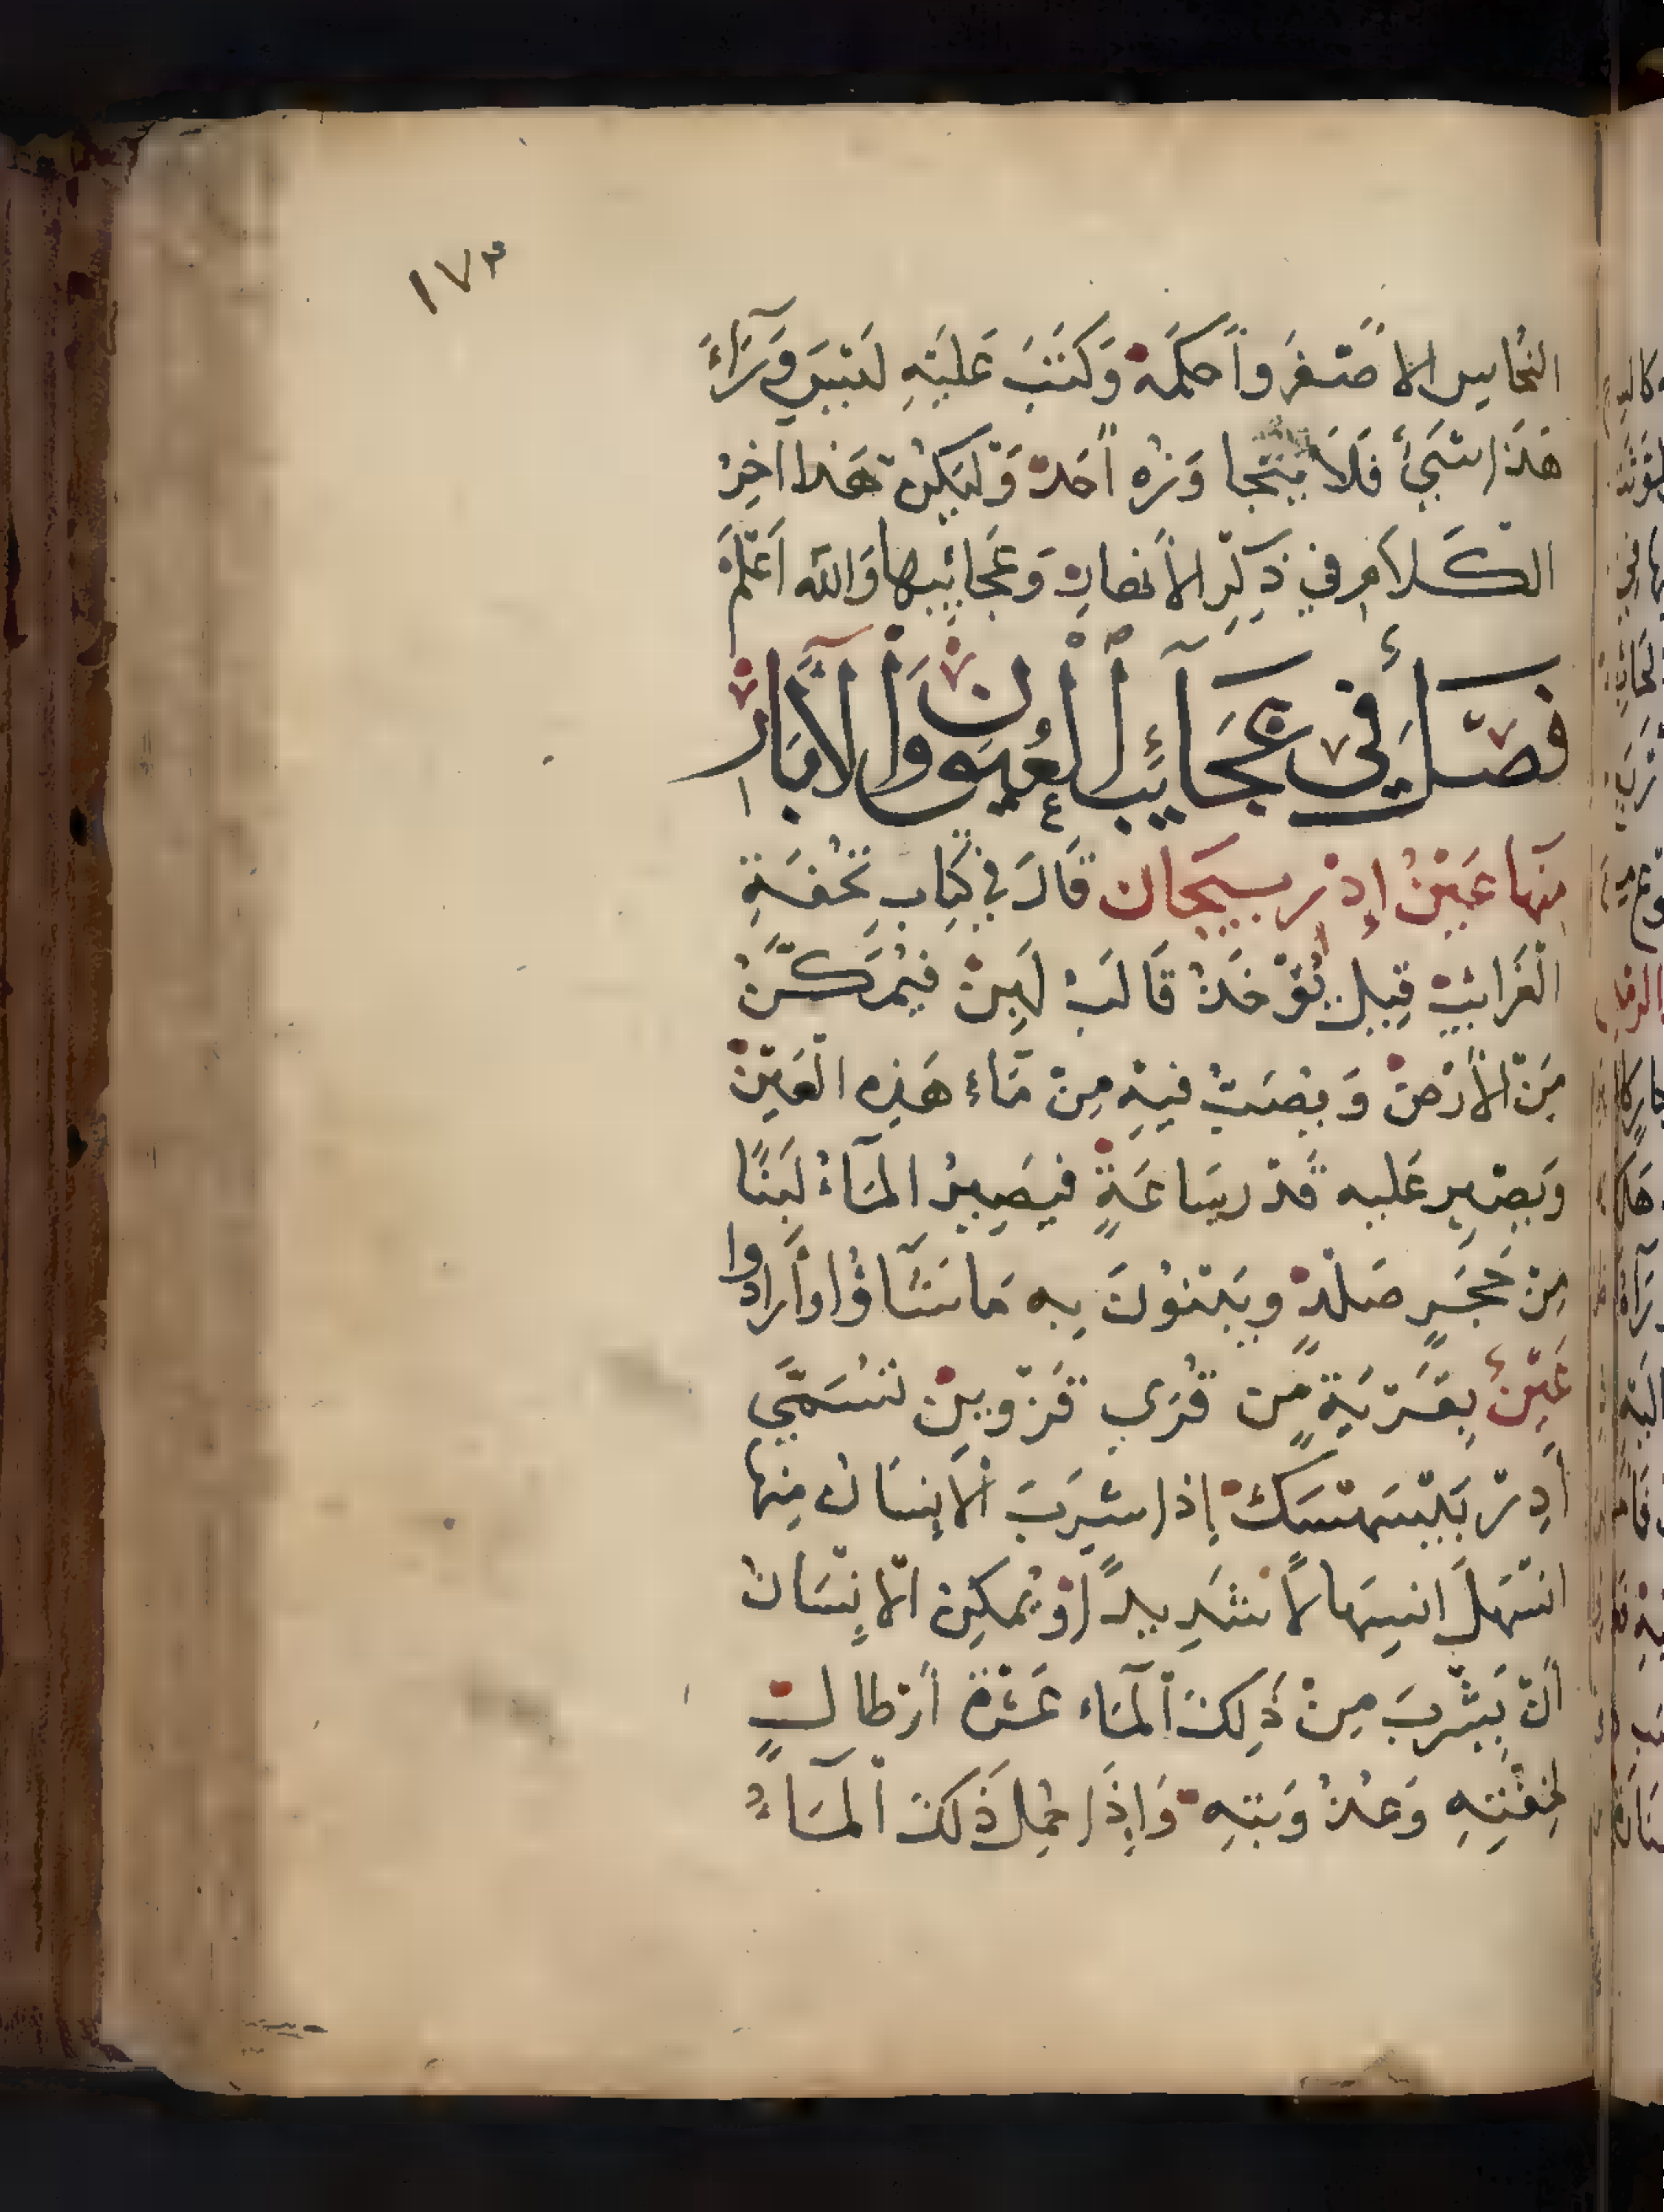 ١٧٣
النُحَاسِ الاَصْفَرِ وَاَحكَمَهُ وَكَتَبَ عَلَيْهِ لَيْسَ وَرَآءَ
هَذَا شَيْءٌ فَلَا يَتَجَاوَزُه اَحَدٌ وَلْيَكُنْ هَذا اخِرُ
الكَلَامِ في ذِكْرِ الأَنهارِ وَعَجَائِبِها وَالله اَعْلَمُ
فَصْلٌ في عَجَآئِبِ الْعُيُونِ وَالْآبَارْ
مِنها عَيْنُ إِدْرَبِيجَان قَالَ في كِتَابِ تُحْفَةِ
الْغَرائِبْ قِيلَ يُوْخَذُ قَالَبُ لَبِنْ فيُمَكَّنُ
مِنَ الأَرْضْ وَيُصَبُّ فيهِ مِنْ مَاء هَذِه الْعَيْنْ
وَيصْبِر عَليه قَدْر سَاعَةٍ فيَصِيرُ المَآءُ لَبِنًا
مِنْ حَجَرٍ صَلْدٍ وَيَبْنُونَ بِه مَا شَآؤُا وأَرادُوا
عَيْنٌ بِقَرْيَةٍ مِن قُرَي قَزْوِينْ تُسَمَّي
إِذا شَرِبَ الْاِنسَانُ مِنها
انْسَهَلَ انسِهَالاً شَدِيداً وَيُمكِنُ الْاِنْسَانَ
أَنْ يَشْرَبَ مِنْ ذَلِكَ الْمَاء عَشْرَةَ أَرْطالٍ
لِخِفَّتِهِ وَعُذُوبَتِهِ وَإِذَا حُمِلَ ذَلِكَ الْمَآءُ